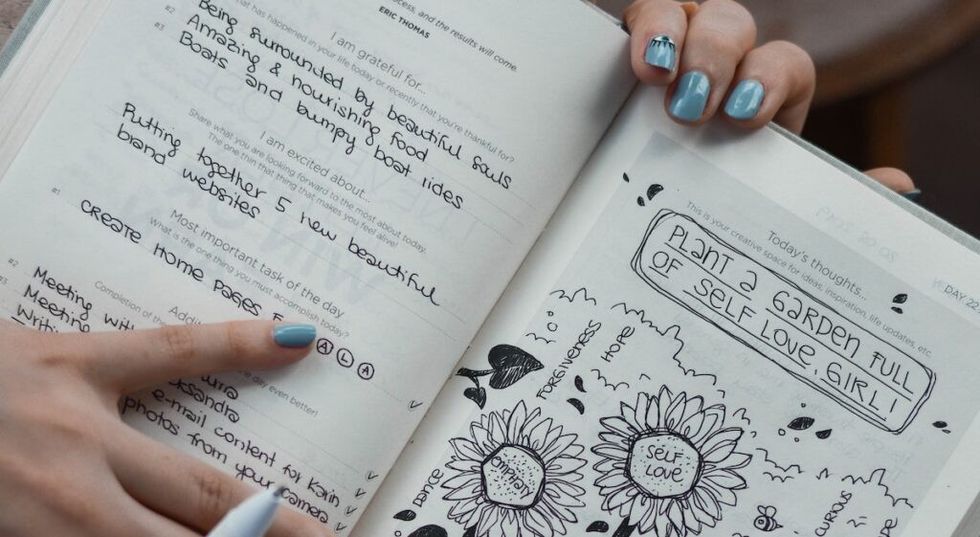 ocess, and the results will come.
ERIC THOMAS
I am grateful for...
what has happened in your life today or recently that you're thankful for?
Being surrounded by beautiful souls
#2
Amazing & nourishing food
#3
Boats and bumpy boat rides
I am excited about...
Share what you are looking forward to the most about today.
The one thin that thing that makes you feel alive!
Putting together 5 new beautiful
brand websites
Most important task of the day
What is the one thing you must accomplish today?
#1
CREATE HOME PAGES F
A L A
Completion of
Addi
e day even better!
#2
Meeting with
#3
Meeting
Writi
ksandra
e-mail content for Karin
photos from your camera
DAY
Today's thoughts...
This is your creative space for ideas, inspiration, life updates, etc.
PLANT a GARDEN FULL
OF SELF LOVE, GIRL!
FORGIVENESS
HOPE
EMPHATY
SELF
LOVE
DANCE
CURIOUS